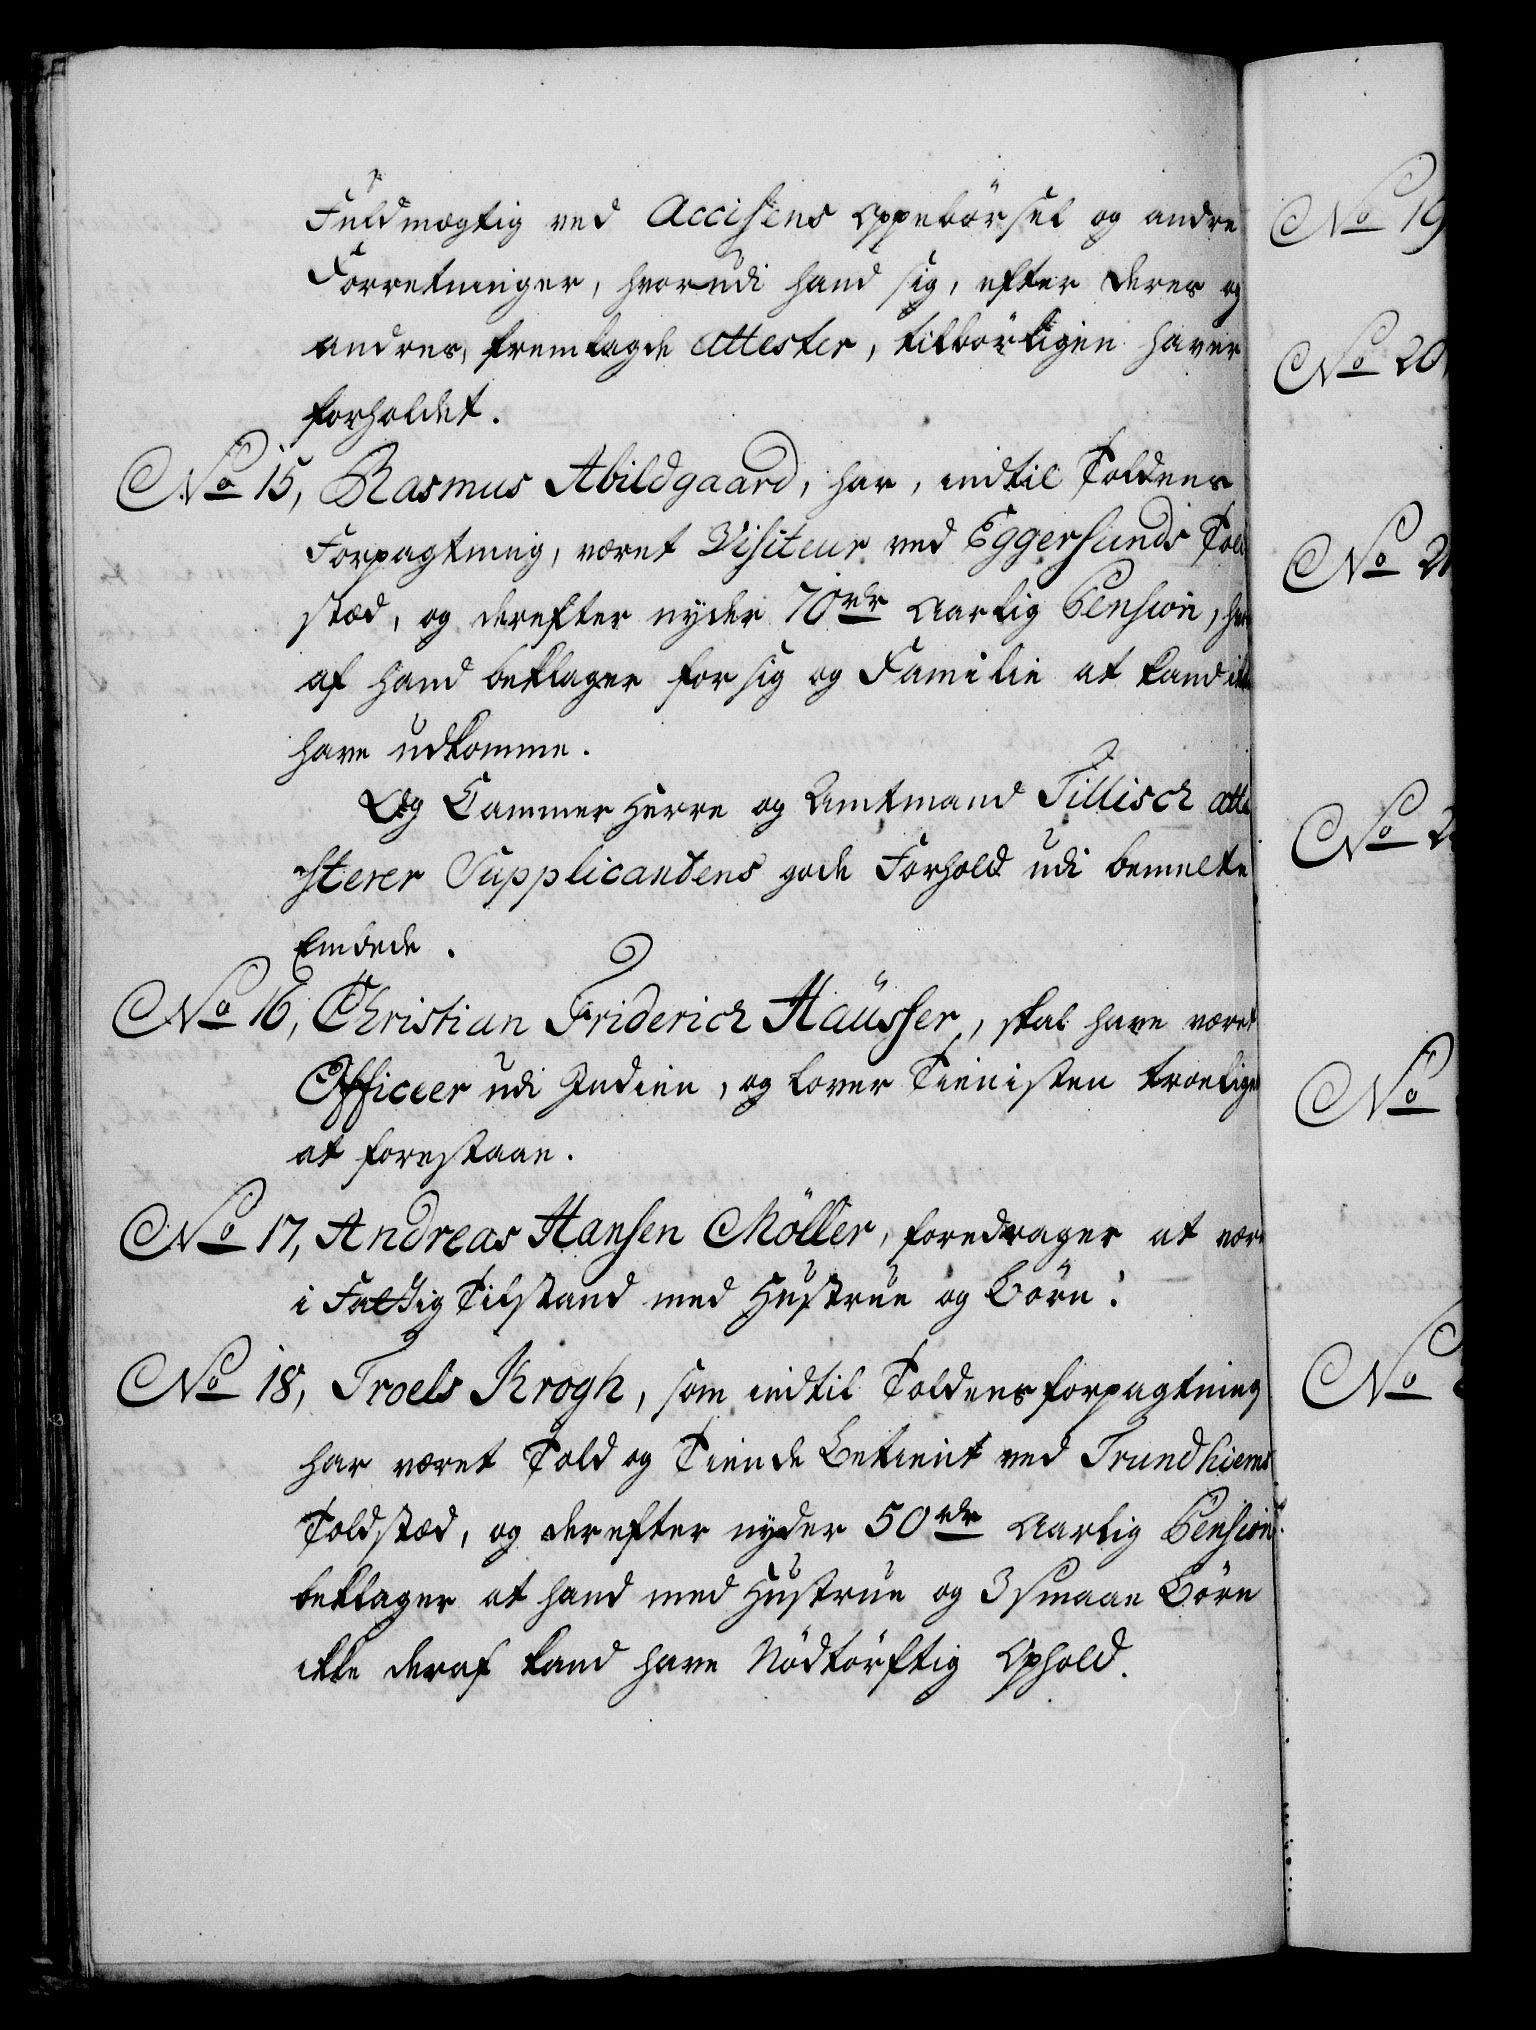 Fuldmægtig ved Accisens Oppebørsel og andre
Forretninger, hvorudi hand sig, efter deres og
andres, fremlagde Attester, tilbørligen haver
forholdet.
No 15, Rasmus Abildgaard, har, indtil Toldens
Forpagtning, været Visiteur ved Eggersunds Told
stæd, og derefter nyder 70 rdr Aarlig Pension, hvor
af hand beklager for sig og Familie at kand ikke
have udkomme.
Og Cammer Herre og Amtmand Tillisch atte
sterer Supplicantens gode Forhold udi bemelte
Embede.
No 16, Christian Friderich Haüsser, skal have været
Officeer udi Indien, og lover Tienisten troelig
at forestaae.
No 17, Andreas Hansen Möller, foredrager at være
i Fattig Tilstand med Hustrue og Börn.
No 18, Troels Krogh, som indtil Toldens forpagtning
har været Told og Tiende Betient ved Trundhiems
Toldstæd, og derefter nyder 50 rdr Aarlig Pension
beklager at hand med Hustrue og 3 smaae Börn
ikke deraf kand have Nödtörftig Ophold.
No 19
No 20,
No 2
No 2
No
No